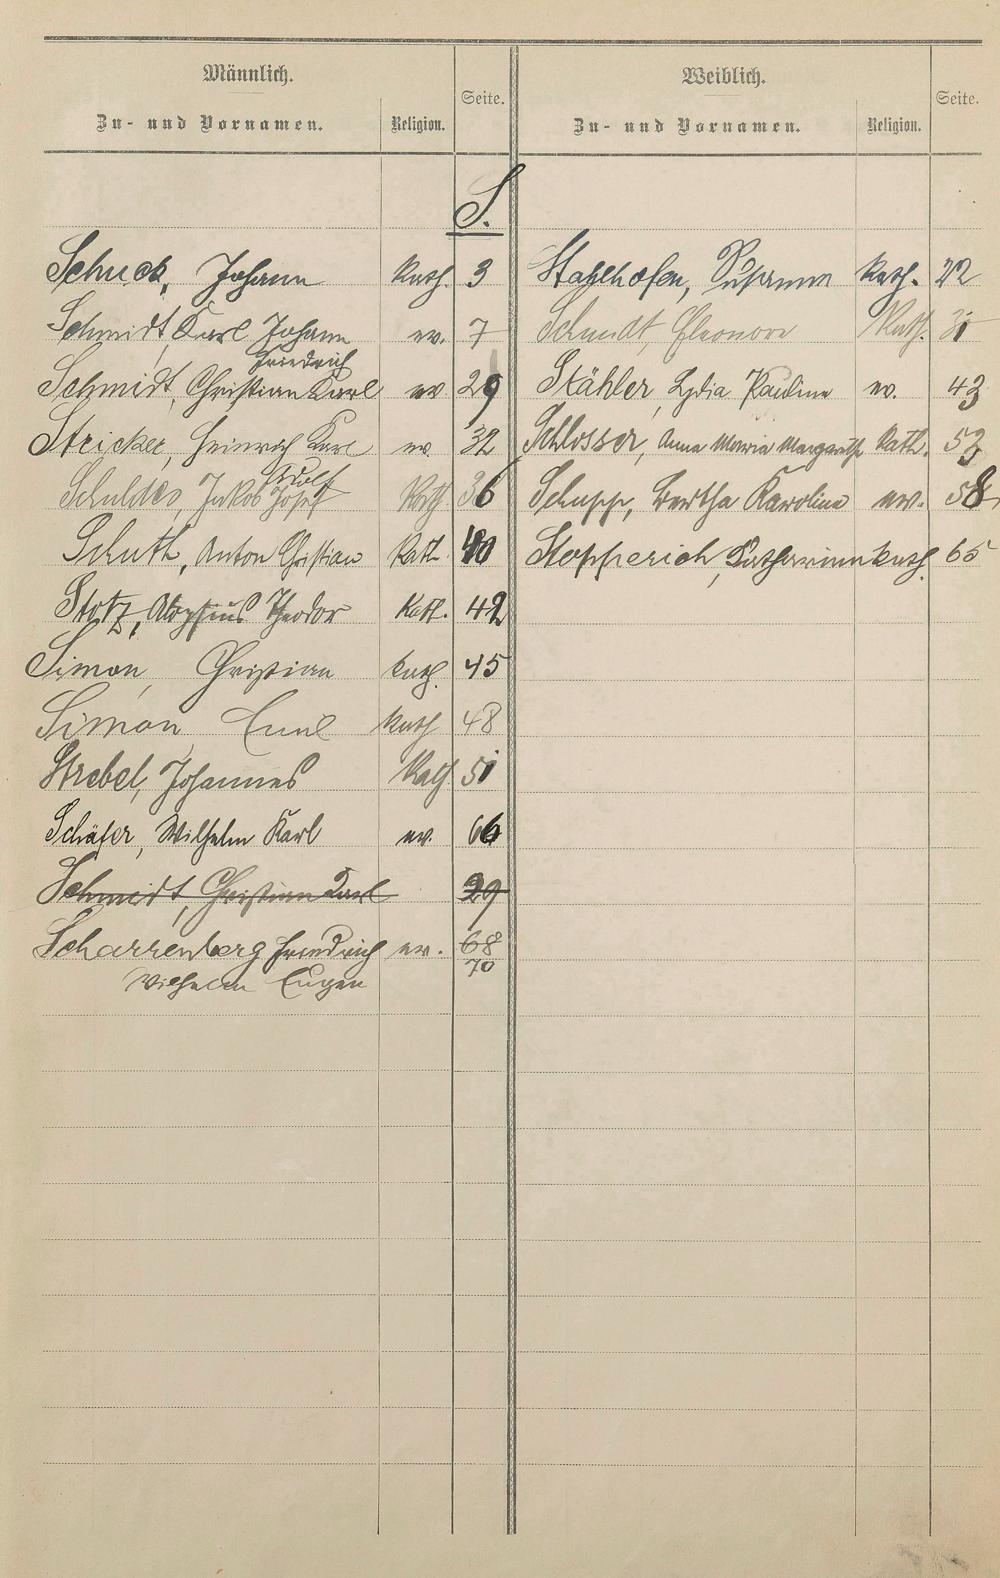 Männlich.
Zu- und Vornamen. Religion. Seite.
Weiblich.
Zu- und Vornamen. Religion. Seite.
S.
Schuck, Johann Kath. 3
Schmidt, Karl Johann ev. 7
Friedrich
Schmidt, Christian Karl ev 29
Stricker, Heinrich Karl ev. 32
Adolf
Schuldes, Jakob Josef Kath. 36
Schuth, Anton Christian Kath. 40
Stotz, Aloysius Theodor Kath. 42
Simon, Christian Kath. 45
Simon Emil Kath 48
Strebel, Johannes Kath. 51
Schäfer, Wilhelm Karl ev. 66
Schmidt, Christian Karl 29
Scharrenberg Friedrich ev. 68
Wilhelm Eugen 70
Stahlhofen, Susanna Kath. 22
Schmidt, Eleonore Kath. 31
Stähler, Lydia Pauline ev. 43
Schlosser, Anna Maria Margaretha Kath. 53
Schupp, Bertha Karoline ev. 58
Stopperich, Katharina Kath. 65